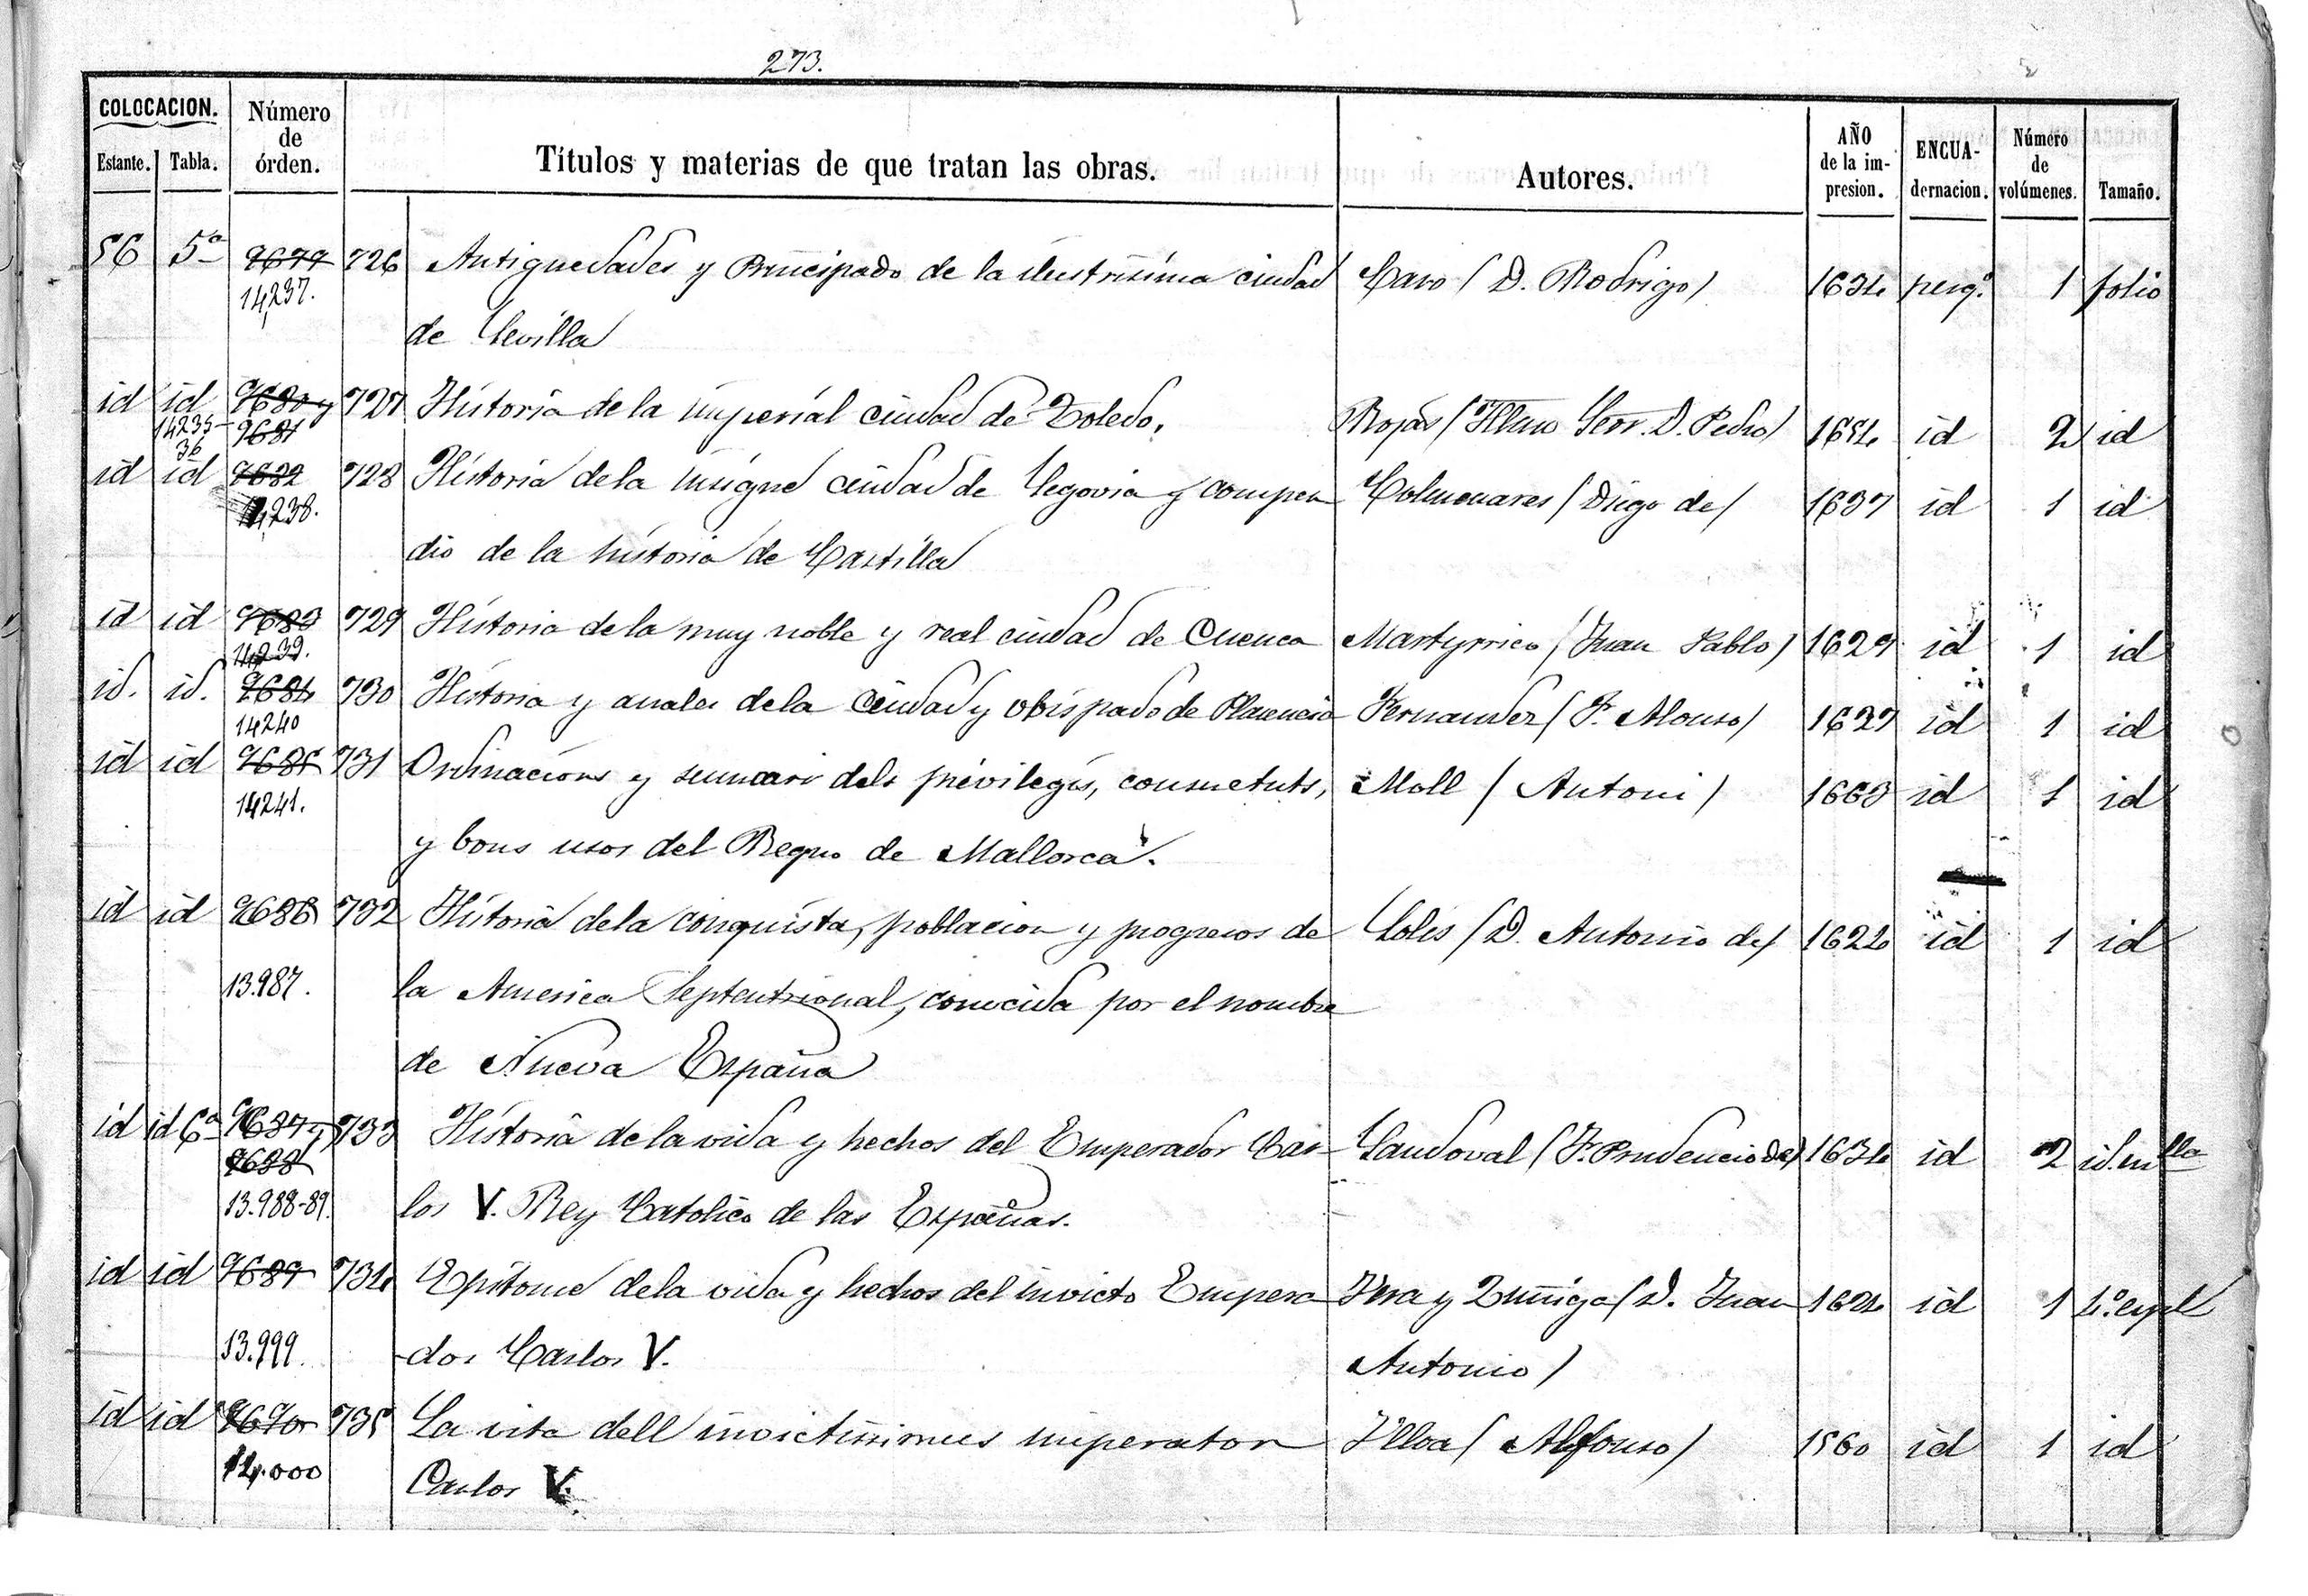 273.
COLOCACION. Número de órden. Títulos y materias de que tratan las obras. Autores. AÑO de la im-presion. ENCUA-dernacion. Número de volúmenes. Tamaño.
Estante. Tabla.
56 5ª 9679 726 Antiguedades y Principado de la ilustrisima ciudad Caro (D. Rodrigo) 1634 perg.º 1 folio
14,237.
de Sevilla
id id 9680 y 727 Historia de la imperial ciudad de Toledo. Rojas (Illmo Serr. D. Pedro) 1654 id 2 id
14235- 9681
36
id id 9682 728 Historia de la insigne ciudad de Segovia y compen Colmenares (Diego de) 1637 id 1 id
14,238.
dio de la historia de Castilla
id id 9683 729 Historia de la muy noble y real ciudad de Cuenca Martyrrico (Juan Pablo) 1629 id 1 id
14,239.
id. id. 9684 730 Historia y anales de la Ciudad y obispado de Plasencia Fernandez (F. Alonso) 1627 id 1 id
14240
id id 9685 731 Ordinacions y sumari dels privilegis, consuetuts, Moll (Antoni) 1663 id 1 id
14241.
y bons usos del Regno de Mallorca.
id id 9686 732 Historia de la conquista, poblacion y progresos de Solis (D. Antonio de) 1624 id 1 id
13.987.
la America Septentrional, conocida por el nombre
de Nueva España
id id 6ª 9687 y 733 Historia de la vida y hechos del Emperador Car- Sandoval (F. Prudencio de) 1634 id 2 id. mlla
9688
13.988-89. los V. Rey Catolico de las Españas.
id id 9689 734 Epitome de la vida y hechos del invicto Empera Vera y Zuñiga (D. Juan 1624 id 1 4.º espl
13.999. dor Carlos V. Antonio)
id id 9690 735 La vita dell invictissimus imperator Ulloa (Alfonso) 1560 id 1 id
14.000 Carlos V.